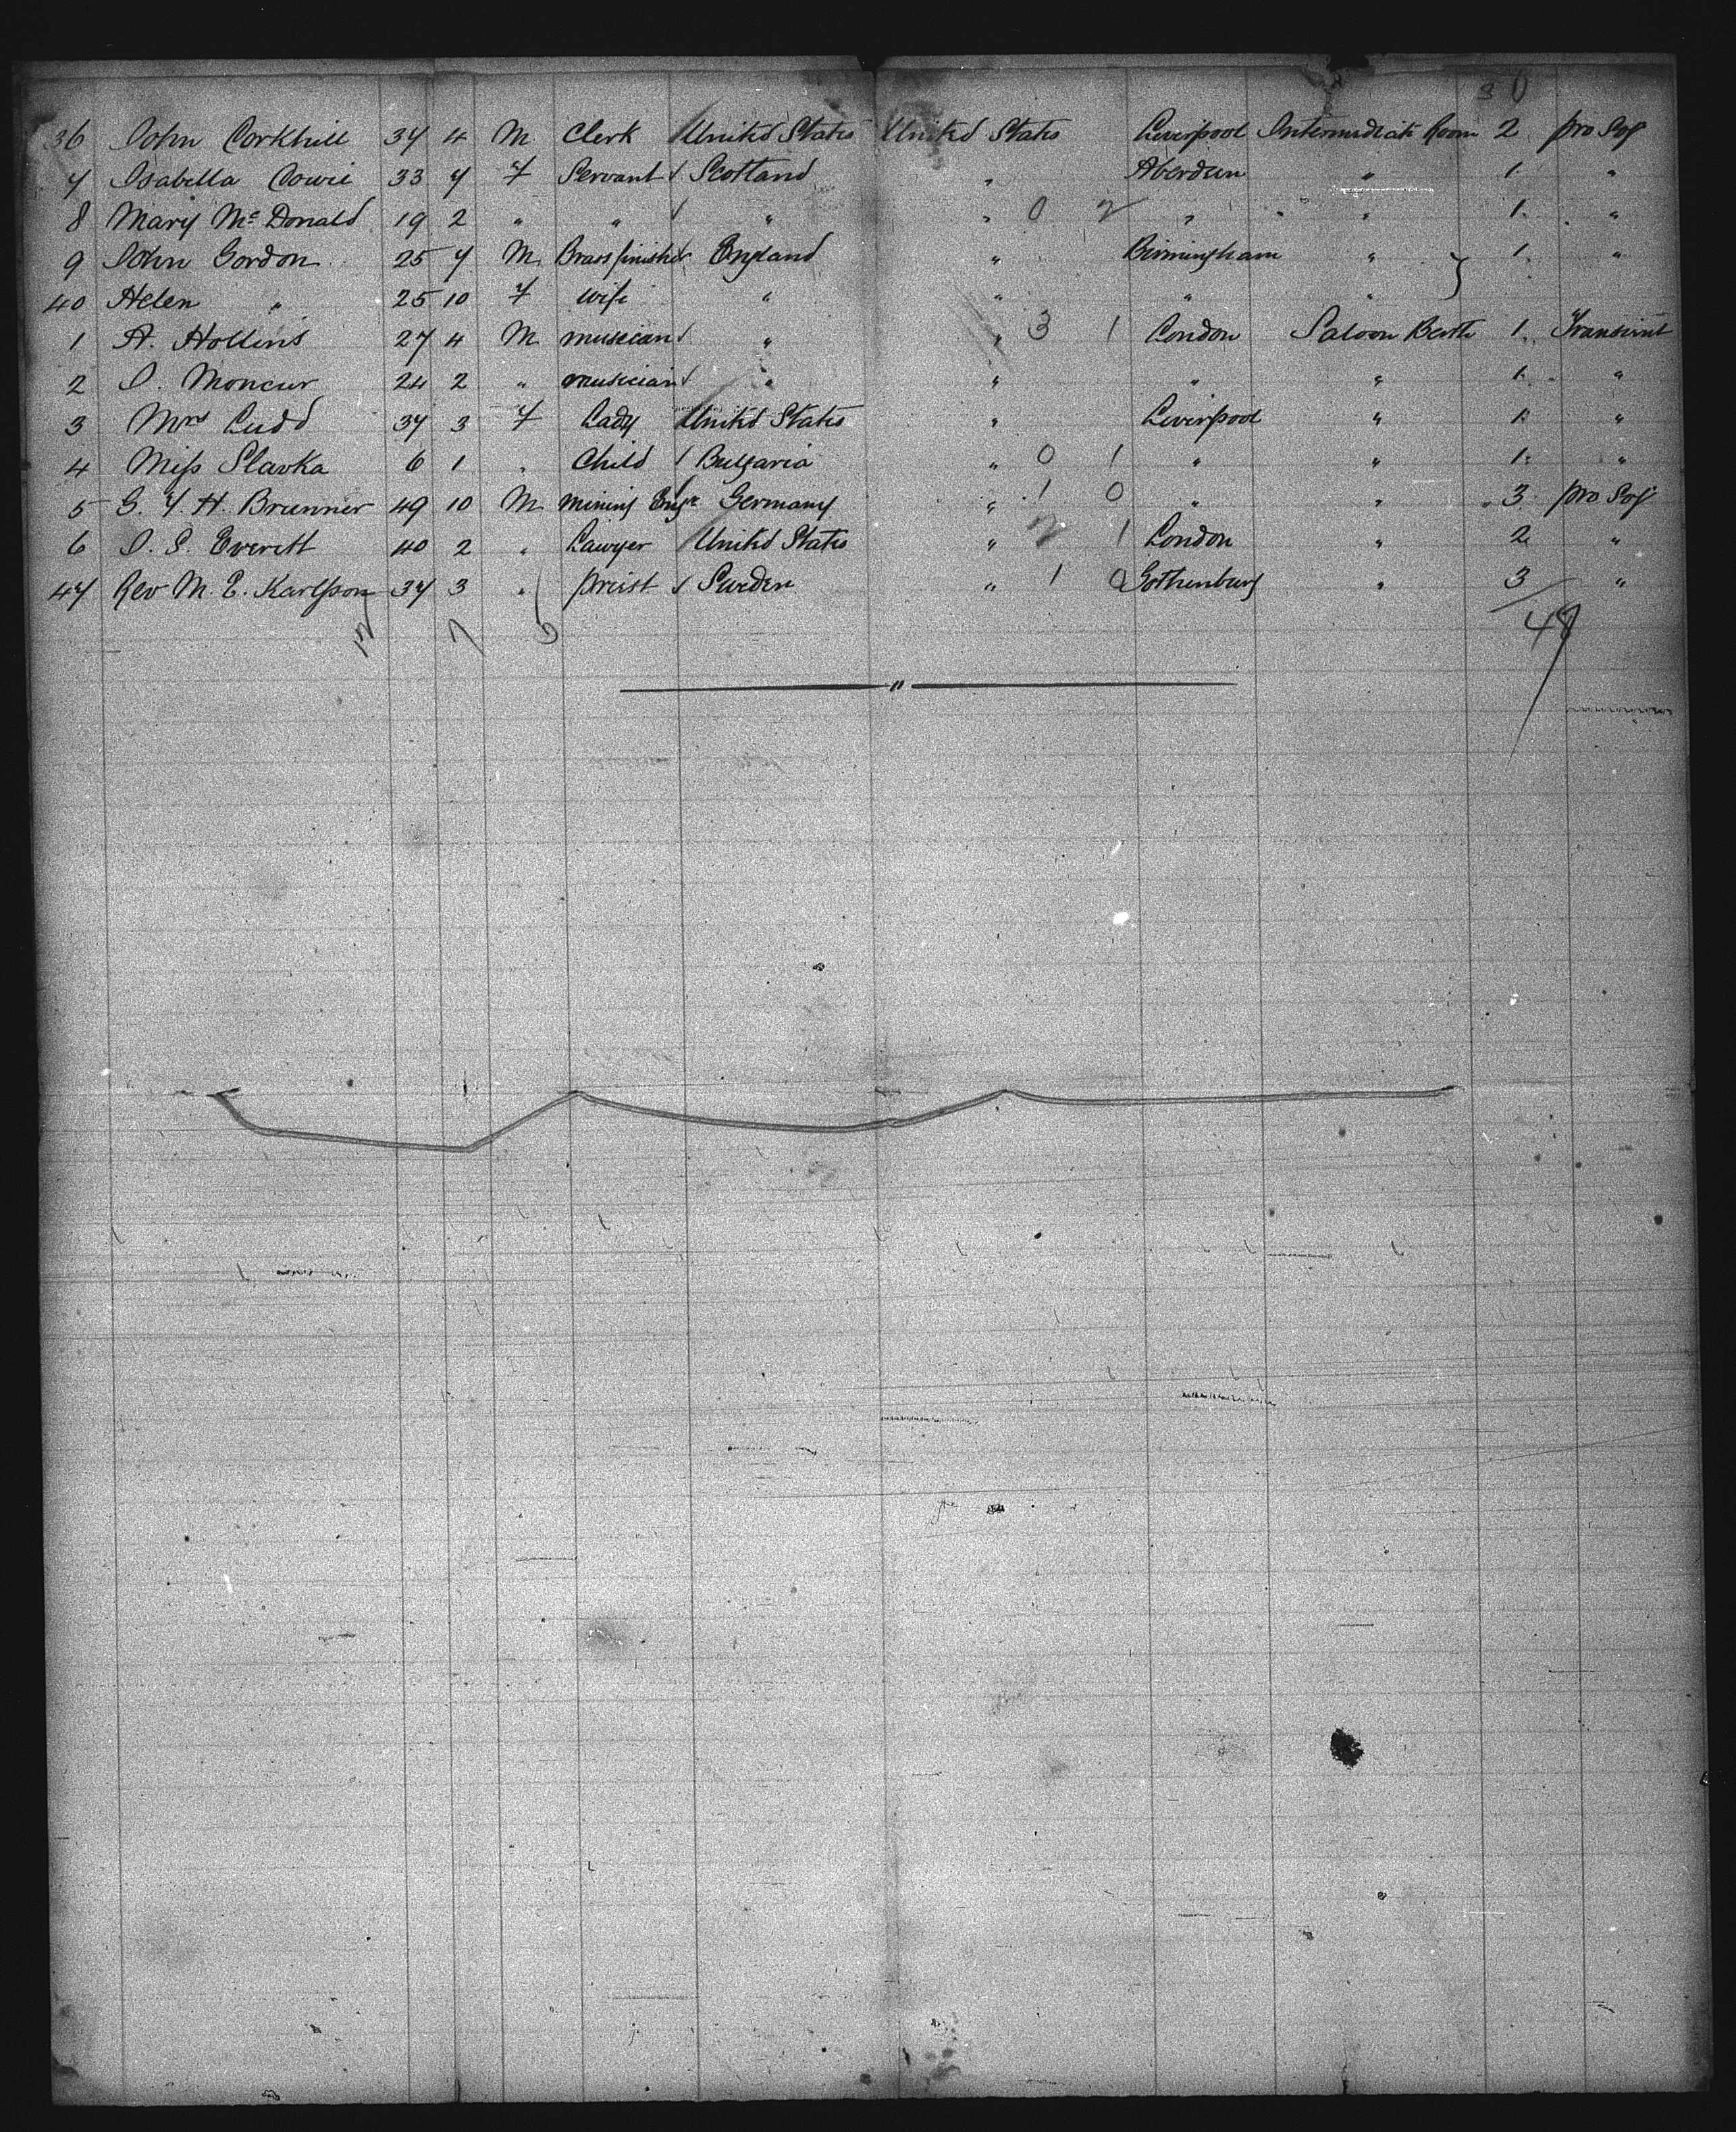 30
36 John Corkhill 37 4 M Clerk United States United States Liverpool Intermediate Room 2 pro Soj
7 Isabella Cowie 33 7 F Servant √ Scotland " Aberdeen " 1 "
8 Mary McDonald 19 2 " " √ " " 0 2 " " 1 "
9 John Gordon 25 7 M Brassfinisher England " Birmingham " } 1 "
40 Helen " 25 10 F wife " " " "
1 A. Hollins 27 4 M musician √ " " 3 1 London Saloon Berth 1 Transient
2 D. Moncur 24 2 " musician √ " " " " 1 "
3 Mrs Ludd 37 3 F Lady United States " Liverpool " 1 "
4 Miss Slavka 6 1 " Child √ Bulgaria " 0 1 " " 1 "
5 G. F. H. Brunner 49 10 M mining Engr Germany " 1 0 " " 3 pro Soj
6 D. E. Everett 40 2 " Lawyer United States " 2 1 London " 2 "
47 Rev M. E. Karlsson 37 3 " preist √ Sweden " 1 0 Gothenburg " 3 "
48
"